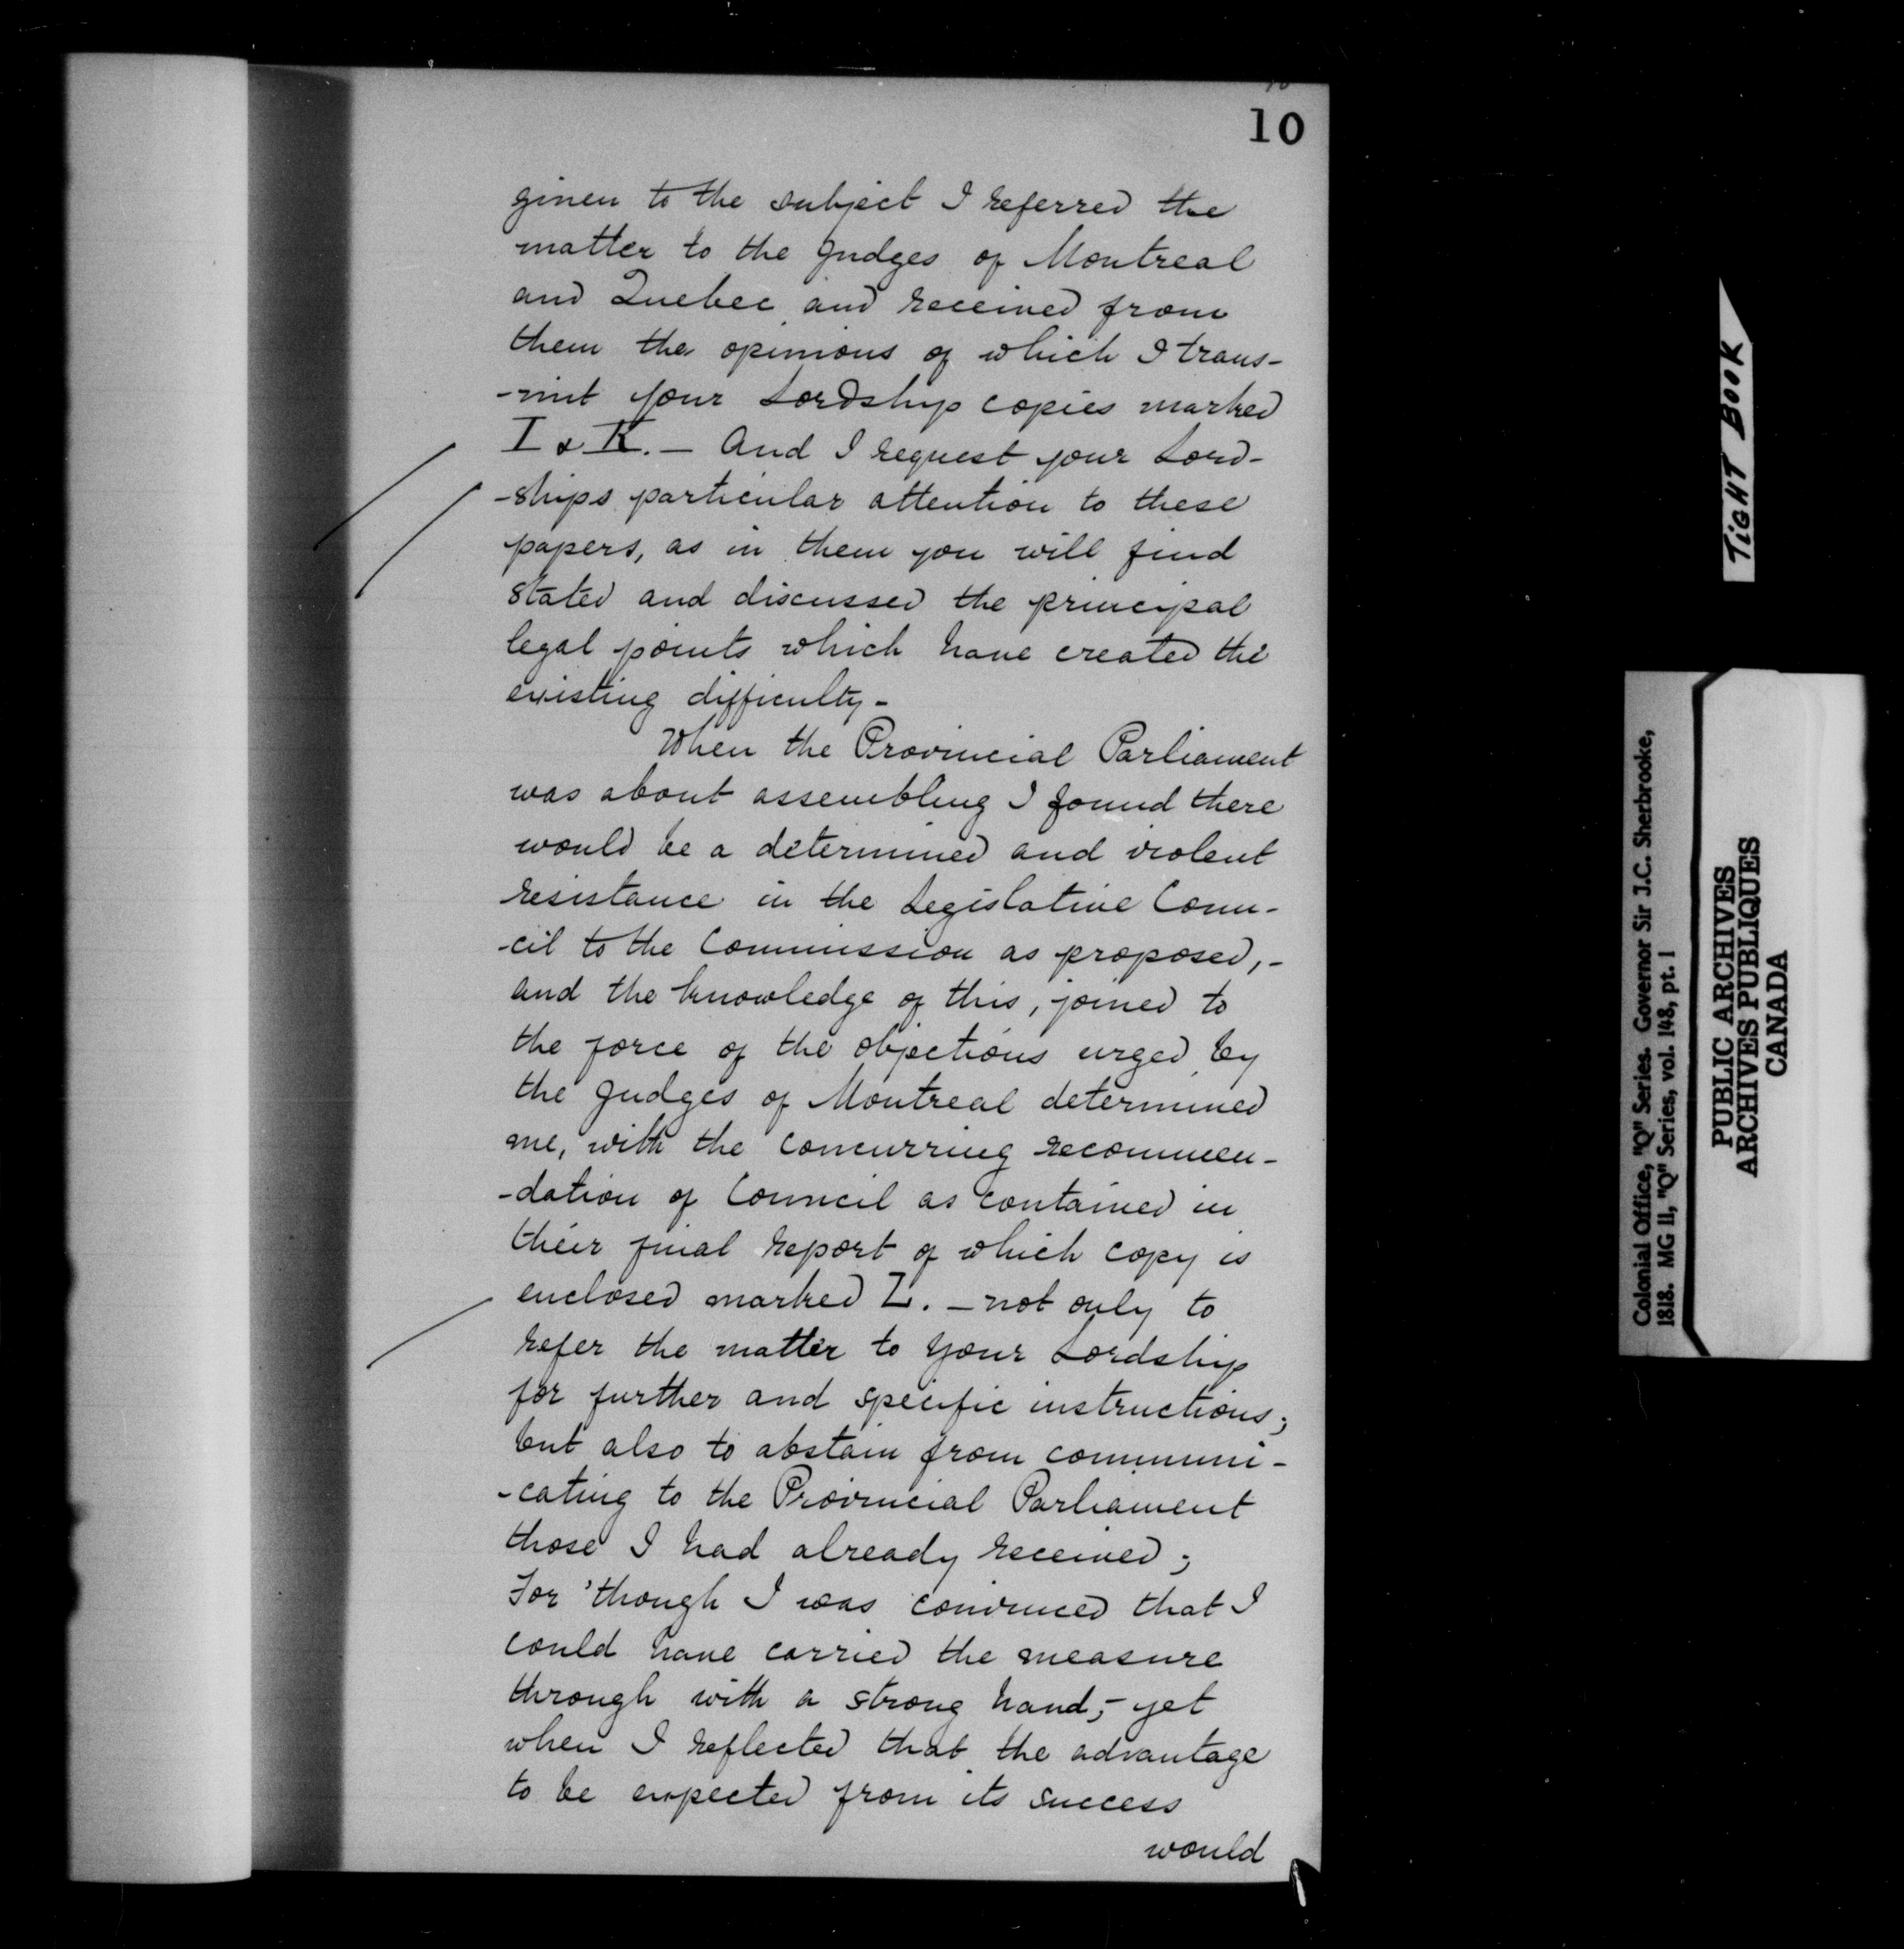 10
given to the subject I referred the
matter to the Judges of Montreal
and Quebec and received from
them the opinions of which I trans-
-mit your Lordship copies marked
I & K. — And I request your Lord-
-ships particular attention to these
papers, as in them you will find
stated and discussed the principal
legal points which have created the
existing difficulty -
When the Provincial Parliament
was about assembling I found there
would be a determined and violent
resistance in the Legislative Coun-
-cil to the Commission as proposed, -
and the knowledge of this, joined to
the force of the objections urged by
the Judges of Montreal determined
me, with the concurring recommen-
-dation of Council as contained in
their final report of which copy is
enclosed marked L. - not only to
refer the matter to your Lordship
for further and specific instructions;
but also to abstain from communi-
-cating to the Provincial Parliament
those I had already received;
For 'though I was convinced that I
could have carried the measure
through with a strong hand, - yet
when I reflected that the advantage
to be expected from its success
would
TIGHT BOOK
Colonial Office, "Q" Series. Governor Sir J.C. Sherbrooke,
1818. MG 11, "Q" Series, vol. 148, pt. 1
PUBLIC ARCHIVES
ARCHIVES PUBLIQUES
CANADA